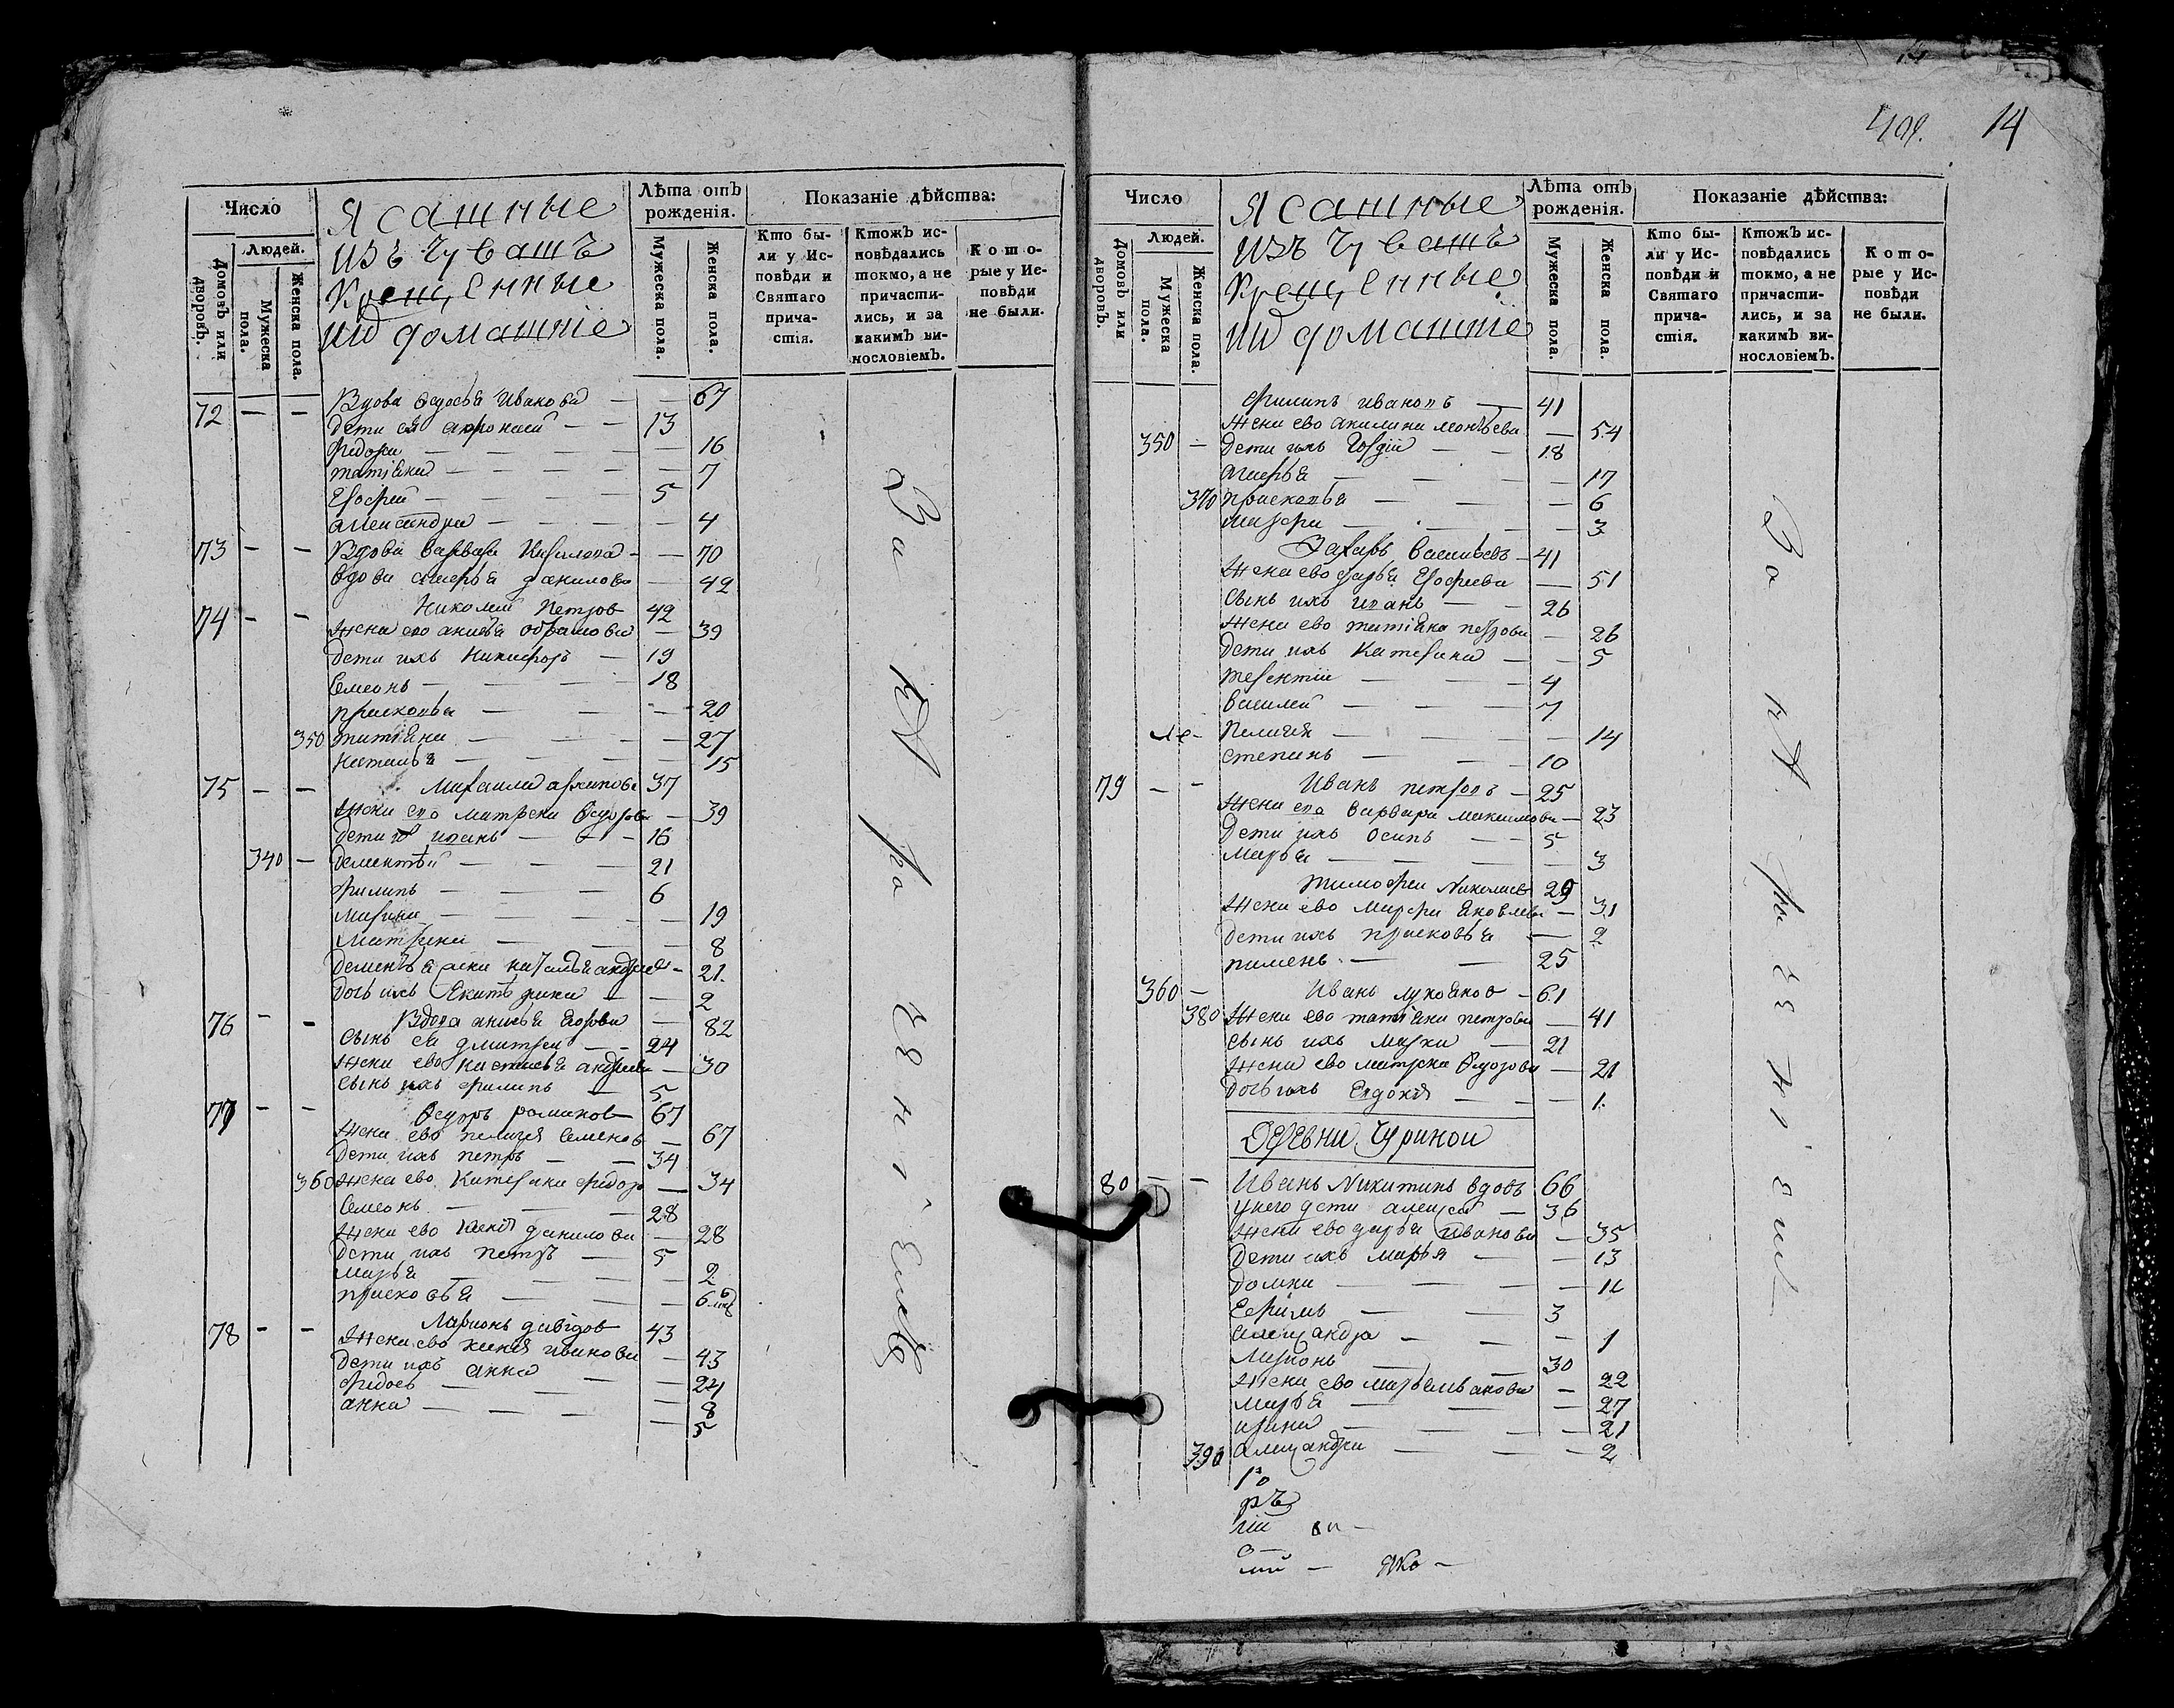 14
14
Число
Людей.
Домовъ или дворовъ.
Мужеска пола.
Женска пола.
Ясашные
изъ Чувашъ
Крещенные
ии домашніе
Лѣта отъ рожденія.
Мужеска пола.
Женска пола.
Показаніе дѣйства:
Кто были у Исповѣди и Святаго причастія.
Ктожъ исповѣдались токмо, а не причастились, и за какимъ винословіемъ.
Которые у Исповѣди не были.
72 — — Вдова Ѳедосья Иванова — — 67
Дети ея афонасей — — 13
Фiдора — — 16
татiяна — — 7
Ерофей — — 5
александра — — 4
73 — — Вдова варвара Кирилова — — 70
вдова марья данилова — 42
74 — — Николай Петров 42
жена ево анисья абрамова — 39
Дети ихъ Никифоръ — 19
Семенъ — — 18
прасковья — — 20
350 татiяна — — 27
наталья — — 15
75 — — Михаила архипов 37
жена ево матрена Ѳедорова — 39
Дети иванъ — — 16
340 — Дементѣй — — 21
филипъ — — 6
марина — — 19
матрена — — 8
Дементья жена наталья андрѣев — 21
Дочь ихъ Екатѣрина — — 2
76 — — Вдова анисья Егорова — 82
сынъ ея дмитрей — — 24
жена ево настасья андреева — 30
сынъ ихъ филипъ — 5
77 — — Ѳедоръ романов 67
жена ево пелагея Семенов — 67
Дети ихъ петръ — — 34
360 жена ево Катерина фiдор — 34
Семенъ — — 28
жена ево данилова — 28
Дети ихъ петръ — 5
марья — — 2
прасковья — — 6
78 — — Ларионъ давiдов 43
жена ево иванова — 43
Дети ихъ анна — 24
фiдось — — 8
анна — — 5
За нѣраченiемъ
Число
Людей.
Домовъ или дворовъ.
Мужеска пола.
Женска пола.
Ясашные
изъ Чувашъ
Крещенные
ии домашніе
Лѣта отъ рожденія.
Мужеска пола.
Женска пола.
Показаніе дѣйства:
Кто были у Исповѣди и Святаго причастія.
Ктожъ исповѣдались токмо, а не причастились, и за какимъ винословіемъ.
Которые у Исповѣди не были.
Филипъ ивановъ — 41
жена ево акилина — 54
350 — Дети ихъ — — 18
марья — — 17
370 прасковья — — 6
марфа — — 3
Захаръ васильевъ — 41
жена ево дарья Ерофеева — 51
сынъ ихъ иванъ — — 26
жена ево татiяна петрова — 26
Дети ихъ Катерина — — 5
терентiи — — 4
василей — — 7
Пелагея — — 14
степанъ — — 10
79 — — Иванъ петровъ — 25
жена ево варвара максимова — 23
Дети ихъ осипъ — — 5
марья — — 3
тимофеи Николаев 29
жена ево марфа яковлева — 31
Дети ихъ прасковья — 2
пименъ — — 25
360 — Иванъ лукоянов — 61
380 жена ево татiяна петрова — 41
сынъ ихъ марка — 21
жена ево матрена Ѳедорова — 21
Дочь ихъ Евдокiя — — 1
Деревни Чуриной
80 — — Иванъ Никитинъ вдовъ 66
у него дети алеѯей — 36
жена ево дарья иванова — 35
Дети ихъ марья — — 13
Домна — — 11
Ефимъ — — 3
алеѯандра — — 1
Миронъ — — 30
жена ево марья иванова — 22
марья — — 27
ирина — — 21
390 алеѯандра — — 2
ръ
лiи
ѳ
мй — Яко —
За нѣраченiемъ